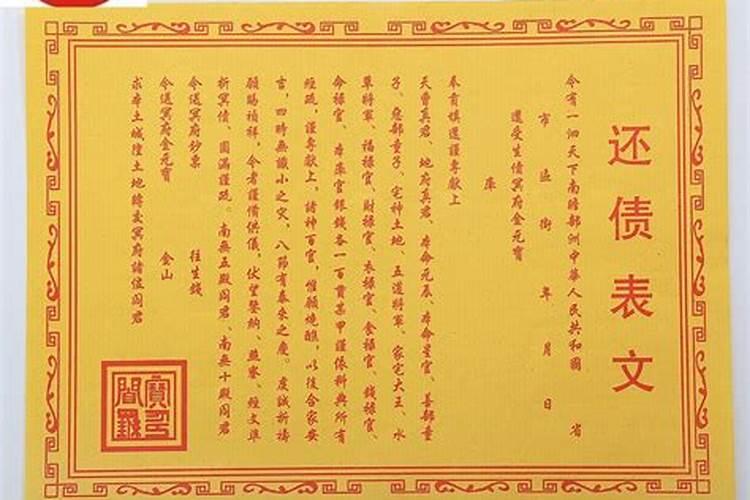 还债表文
今有一泗天下南瞻部洲中華人民共和國 省
市 區 街 年 月 日
還受生債冥府金元寶
庫
奉育填還謹專獻上
天曹真君、地府真君、本命元辰、本命星官、善部童
子、惡部童子、宅神土地、五道將軍、家宅大王、水
草將軍、福祿官、財祿官、衣祿官、食祿官、錢祿官、
命祿官、本庫官銀錢各一百貫某甲謹依科典所有
經疏,謹專獻上,諸神百官,惟願燒醮,以後合家安
吉,四時無識小之灾,八節有泰來之慶。虔誠祈禱
願賜禎祥,今者謹備供儀,伏望鑒納、燕察、經文準
折冥債、圆滿謹疏。南無五殿阎君、南無十殿阎君
今送冥府鈔票 往生錢
今送冥府金元寶 金山
求本土城隍土地轉交冥府諸位阎君